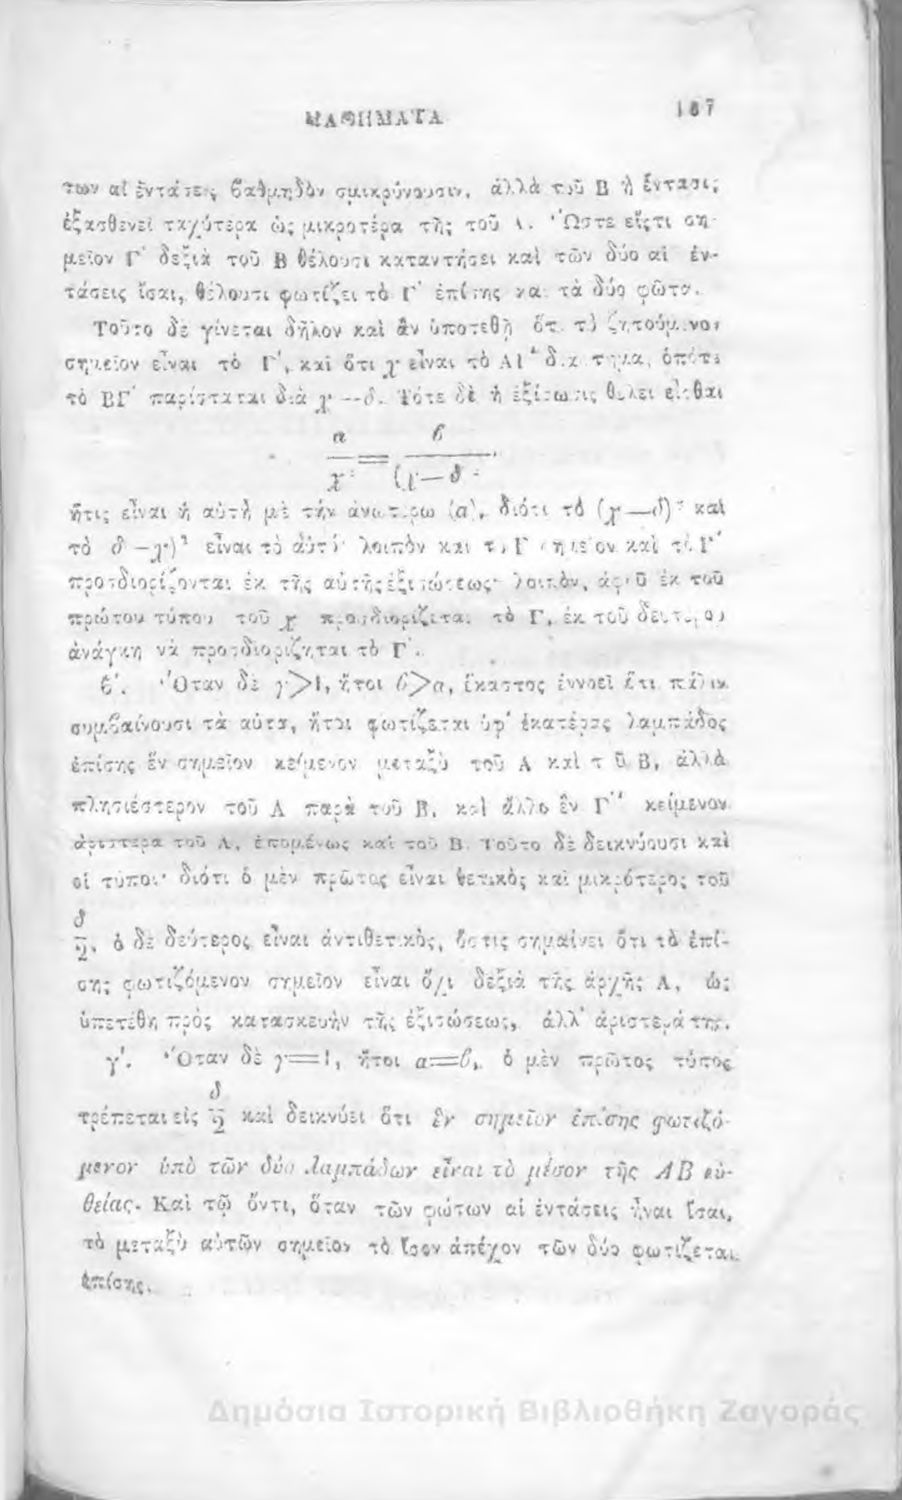 ΜΑΘΗΜΑΤΑ 187
των αἱ ἐντάσεις βαθμηδὸν σμικρύνουσιν, ἀλλὰ τοῦ Β ἡ ἔντασις
ἐξασθενεῖ ταχύτερα ὡς μικροτέρα τῆς τοῦ Α. Ὥστε εἴς τι ση-
μεῖον Γ' δεξιὰ τοῦ Β θέλουσι καταντήσει καὶ τῶν δύο αἱ ἐν-
τάσεις ἴσαι, θέλουσι φωτίζει τὸ Γ' ἐπίσης καὶ τὰ δύο φῶτα.
Τοῦτο δὲ γίνεται δῆλον καὶ ἂν ὑποτεθῇ ὅτι τὸ ζητούμενον
σημεῖον εἶναι τὸ Γ', καὶ ὅτι χ εἶναι τὸ ΑΓ' διάστημα, ὁπότε
τὸ ΒΓ' παρίσταται διὰ χ—δ. Τότε δὲ ἡ ἐξίσωσις θέλει εἶσθαι
α β
— = —
χ² (χ—δ)²
ἥτις εἶναι ἡ αὐτὴ μὲ τὴν ἀνωτέρω (α), διότι τὸ (χ—δ)² καὶ
τὸ (δ—χ)² εἶναι τὸ αὐτό· λοιπὸν καὶ τὸ Γ σημεῖον καὶ τὸ Γ'
προσδιορίζονται ἐκ τῆς αὐτῆς ἐξισώσεως· λοιπὸν, ἀφ' οὗ ἐκ τοῦ
πρώτου τύπου τοῦ χ προσδιορίζεται τὸ Γ, ἐκ τοῦ δευτέρου
ἀνάγκη νὰ προσδιορίζηται τὸ Γ'.
β'. Ὅταν δὲ γ>1, ἤτοι β>α, ἕκαστος ἐννοεῖ ὅτι πάλιν
συμβαίνουσι τὰ αὐτὰ, ἤτοι φωτίζεται ὑφ' ἑκατέρας λαμπάδος
ἐπίσης ἓν σημεῖον κείμενον μεταξὺ τοῦ Α καὶ τοῦ Β, ἀλλὰ
πλησιέστερον τοῦ Α παρὰ τοῦ Β, καὶ ἄλλο ἓν Γ'' κείμενον
ἀριστερὰ τοῦ Α, ἑπομένως καὶ τοῦ Β. Τοῦτο δὲ δεικνύουσι καὶ
οἱ τύποι· διότι ὁ μὲν πρῶτος εἶναι θετικὸς καὶ μικρότερος τοῦ
δ
2, ὁ δὲ δεύτερος εἶναι ἀντιθετικὸς, ὅστις σημαίνει ὅτι τὸ ἐπί-
σης φωτιζόμενον σημεῖον εἶναι ὄχι δεξιὰ τῆς ἀρχῆς Α, ὡς
ὑπετέθη πρὸς κατασκευὴν τῆς ἐξισώσεως, ἀλλ' ἀριστερά της.
γ'. Ὅταν δὲ γ=1, ἤτοι α=β, ὁ μὲν πρῶτος τύπος
δ
τρέπεται εἰς 2 καὶ δεικνύει ὅτι ἓν σημεῖον ἐπίσης φωτιζό-
μενον ὑπὸ τῶν δύο λαμπάδων εἶναι τὸ μέσον τῆς ΑΒ εὐ-
θείας. Καὶ τῷ ὄντι, ὅταν τῶν φώτων αἱ ἐντάσεις ἦναι ἴσαι,
τὸ μεταξὺ αὐτῶν σημεῖον τὸ ἴσον ἀπέχον τῶν δύο φωτίζεται
ἐπίσης.
Δημόσια Ιστορική Βιβλιοθήκη Ζαγοράς